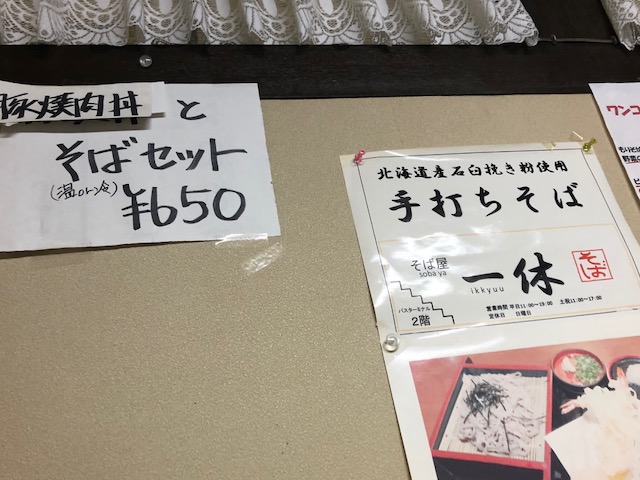 豚焼肉丼 と
そばセット
(温or冷)
¥650
北海道産石臼挽き粉使用
手打ちそば
そば屋
soba ya
一休
ikkyuu
そば
バスターミナル
2階
営業時間 平日11:00〜19:00 土祝11:00〜17:00
定休日 日曜日
ワンコ
もりそば